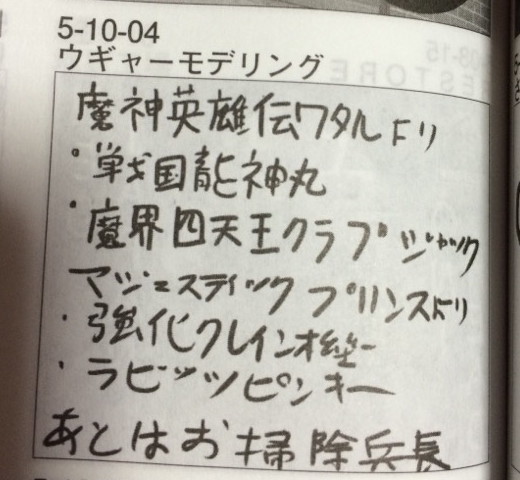 5-10-04
ウギャーモデリング
魔神英雄伝ワタルより
・戦国龍神丸
・魔界四天王クラブジャック
マジェスティックプリンスより
・強化クレイン
・ラビッツピンキー
あとはお掃除兵長